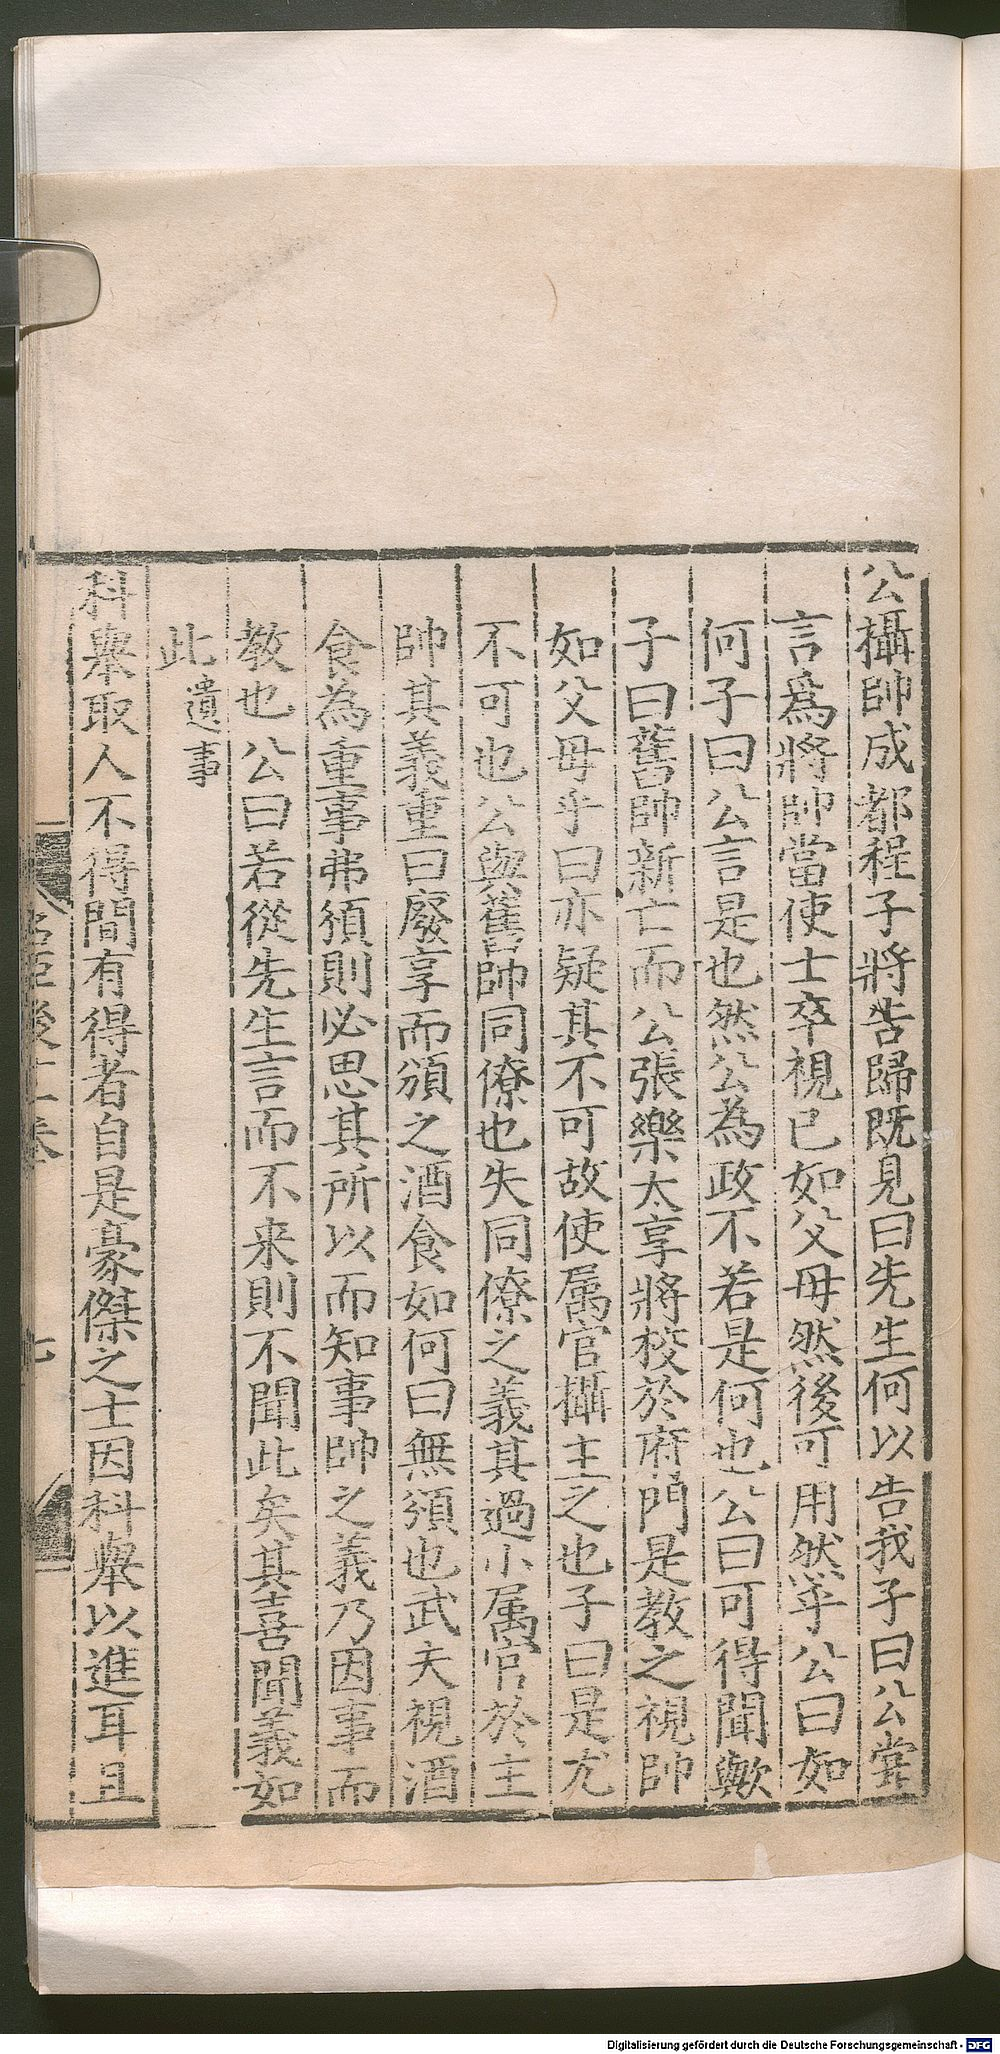 公攝帥成都程子將告歸旣見曰先生何以告我子曰公甞
言爲將帥當使士卒視已如父母然後可用然乎公曰如
何子曰公言是也然公為政不若是何也公曰可得聞歟
子曰舊帥新亡而公張樂大享將校於府門是教之視帥
如父母乎曰亦疑其不可故使属官攝主之也子曰是尤
不可也公與舊帥同僚也失同僚之義其過小属官於主
帥其義重曰廢享而頒之酒食如何曰無頒也武夫視酒
食為重事弗頒則必思其所以而知事帥之義乃因事而
教也公曰若從先生言而不来則不聞此矣其喜聞義如
此遺事
科舉取人不得間有得者自是豪傑之士因科舉以進耳且
名臣後十一卷
七
Digitalisierung gefördert durch die Deutsche Forschungsgemeinschaft - DFG